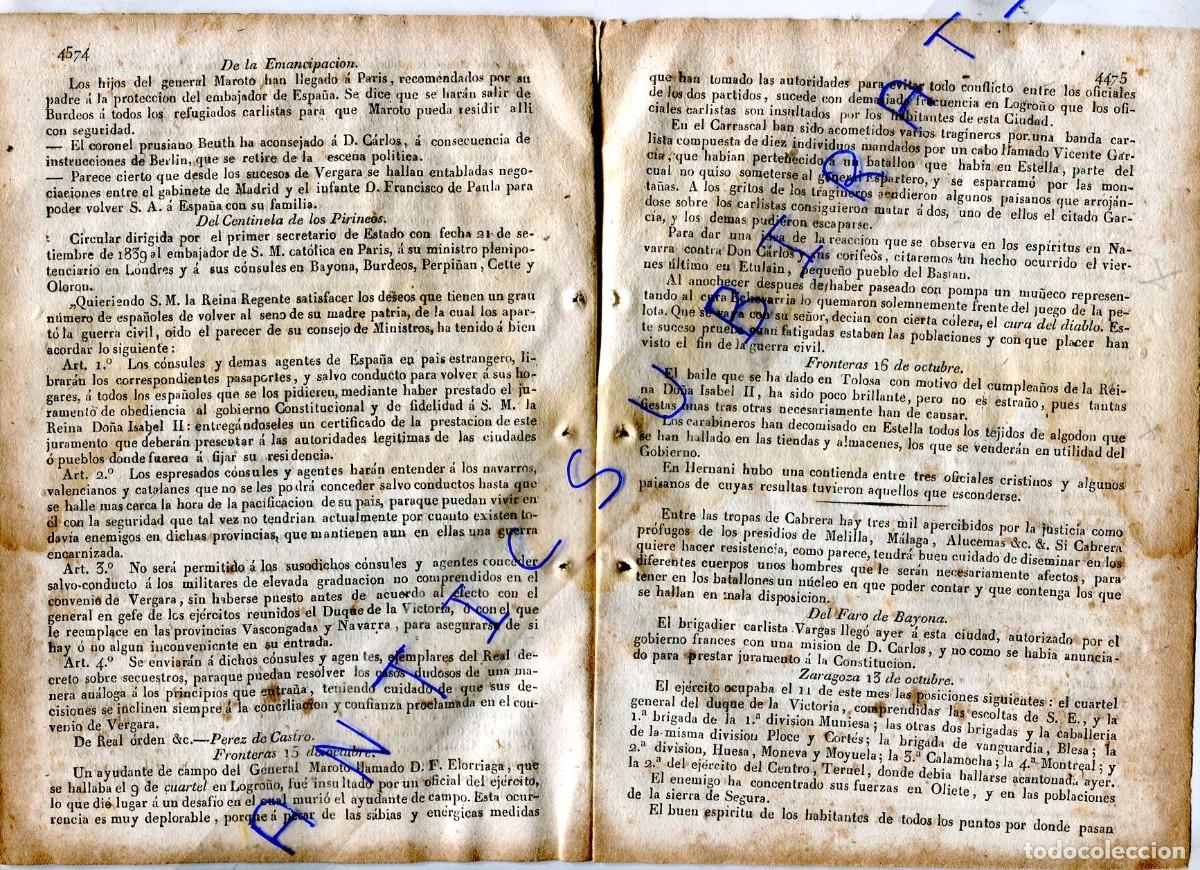 4574
De la Emancipacion.
Los hijos del general Maroto han llegado á Paris, recomendados por su
padre á la proteccion del embajador de España. Se dice que se harán salir de
Burdeos á todos los refugiados carlistas para que Maroto pueda residir alli
con seguridad.
— El coronel prusiano Beuth ha aconsejado á D. Cárlos, á consecuencia de
instrucciones de Berlin, que se retire de la escena politica.
— Parece cierto que desde los sucesos de Vergara se hallan entabladas nego-
ciaciones entre el gabinete de Madrid y el infante D. Francisco de Paula para
poder volver S. A. á España con su familia.
Del Centinela de los Pirineos.
Circular dirigida por el primer secretario de Estado con fecha 21 de se-
tiembre de 1839 al embajador de S. M. católica en Paris, á su ministro plenipo-
tenciario en Londres y á sus cónsules en Bayona, Burdeos, Perpiñan, Cette y
Oloron.
„Queriendo S. M. la Reina Regente satisfacer los deseos que tienen un gran
número de españoles de volver al seno de su madre patria, de la cual los apar-
tó la guerra civil, oido el parecer de su consejo de Ministros, ha tenido á bien
acordar lo siguiente:
Art. 1.º Los cónsules y demas agentes de España en pais estrangero, li-
brarán los correspondientes pasaportes, y salvo conducto para volver á sus ho-
gares, á todos los españoles que se los pidieren, mediante haber prestado el ju-
ramento de obediencia al gobierno Constitucional y de fidelidad á S. M. la
Reina Doña Isabel II: entregándoseles un certificado de la prestacion de este
juramento que deberán presentar á las autoridades legitimas de las ciudades
ó pueblos donde fueren á fijar su residencia.
Art. 2.º Los espresados cónsules y agentes harán entender á los navarros,
valencianos y catalanes que no se les podrá conceder salvo conductos hasta que
se halle mas cerca la hora de la pacificacion de su pais, paraque puedan vivir en
él con la seguridad que tal vez no tendrian actualmente por cuanto existen to-
davia enemigos en dichas provincias, que mantienen aun en ellas una guerra
encarnizada.
Art. 3.º No será permitido á los susodichos cónsules y agentes conceder
salvo-conducto á los militares de elevada graduacion no comprendidos en el
convenio de Vergara, sin haberse puesto antes de acuerdo al efecto con el
general en gefe de los ejércitos reunidos el Duque de la Victoria, ó con el que
le reemplace en las provincias Vascongadas y Navarra, para asegurarse de si
hay ó no algun inconveniente en su entrada.
Art. 4.º Se enviarán á dichos cónsules y agentes, ejemplares del Real de-
creto sobre secuestros, paraque puedan resolver los casos dudosos de una ma-
nera análoga á los principios que entraña, teniendo cuidado de que sus de-
cisiones se inclinen siempre á la conciliacion y confianza proclamada en el con-
venio de Vergara.
De Real órden &c.—Perez de Castro.
Fronteras 15 de octubre.
Un ayudante de campo del General Maroto llamado D. F. Elorriaga, que
se hallaba el 9 de cuartel en Logroño, fué insultado por un oficial del ejército,
lo que dió lugar á un desafio en el cual murió el ayudante de campo. Esta ocur-
rencia es muy deplorable, porque á pesar de las sábias y enérgicas medidas
4475
que han tomado las autoridades para evitar todo conflicto entre los oficiales
de los dos partidos, sucede con demasiada frecuencia en Logroño que los ofi-
ciales carlistas son insultados por los habitantes de esta Ciudad.
En el Carrascal han sido acometidos varios tragineros por una banda car-
lista compuesta de diez individuos mandados por un cabo llamado Vicente Gar-
cia, que habian pertenecido á un batallon que habia en Estella, parte del
cual no quiso someterse al general Espartero, y se esparramó por las mon-
tañas. A los gritos de los tragineros acudieron algunos paisanos que arroján-
dose sobre los carlistas consiguieron matar á dos, uno de ellos el citado Gar-
cía, y los demas pudieron escaparse.
Para dar una idea de la reaccion que se observa en los espíritus en Na-
varra contra Don Carlos y sus corifeos, citaremos un hecho ocurrido el vier-
nes último en Etulain, pequeño pueblo del Bastan.
Al anochecer despues de haber paseado con pompa un muñeco represen-
tando al cura Echevarria lo quemaron solemnemente frente del juego de la pe-
lota. Que se vaya con su señor, decian con cierta cólera, el cura del diablo. Es-
te suceso prueba cuan fatigadas estaban las poblaciones y con que placer han
visto el fin de la guerra civil.
Fronteras 16 de octubre.
El baile que se ha dado en Tolosa con motivo del cumpleaños de la Réi-
na Doña Isabel II, ha sido poco brillante, pero no es estraño, pues tantas
fiestas unas tras otras necesariamente han de causar.
Los carabineros han decomisado en Estella todos los tejidos de algodon que
se han hallado en las tiendas y almacenes, los que se venderán en utilidad del
Gobierno.
En Hernani hubo una contienda entre tres oficiales cristinos y algunos
paisanos de cuyas resultas tuvieron aquellos que esconderse.
Entre las tropas de Cabrera hay tres mil apercibidos por la justicia como
prófugos de los presidios de Melilla, Málaga, Alucemas &c. &. Si Cabrera
quiere hacer resistencia, como parece, tendrá buen cuidado de diseminar en los
diferentes cuerpos unos hombres que le serán necesariamente afectos, para
tener en los batallones un núcleo en que poder contar y que contenga los que
se hallan en mala disposicion.
Del Faro de Bayona.
El brigadier carlista Vargas llegó ayer á esta ciudad, autorizado por el
gobierno frances con una mision de D. Carlos, y no como se habia anuncia-
do para prestar juramento á la Constitucion.
Zaragoza 13 de octubre.
El ejército ocupaba el 11 de este mes las posiciones siguientes: el cuartel
general del duque de la Victoria, comprendidas las escoltas de S. E., y la
1.ª brigada de la 1.ª division Muniesa; las otras dos brigadas y la caballeria
de la misma division Ploce y Cortés; la brigada de vanguardia, Blesa; la
2.ª division, Huesa, Moneva y Moyuela; la 3.ª Calamocha; la 4.ª Montreal; y
la 2.ª del ejército del Centro, Teruel, donde debia hallarse acantonada ayer.
El enemigo ha concentrado sus fuerzas en Oliete, y en las poblaciones
de la sierra de Segura.
El buen espiritu de los habitantes de todos los puntos por donde pasan
ANTICSUBIRATS
todocoleccion